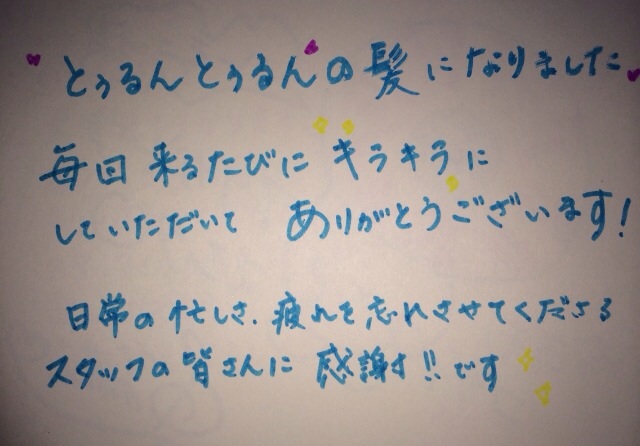 とぅるんとぅるんの髪になりました
毎回 来るたびに キラキラに
していただいて ありがとうございます!
日常の忙しさ、疲れを忘れさせてくださる
スタッフの皆さんに 感謝す!!です